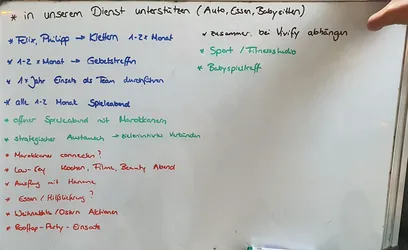 * in unserem Dienst unterstützen (Auto, Essen, Babysitten)
* Felix, Philipp → Klettern 1-2x Monat
* 1-2 x Monat → Gebetstreffen
* 1x Jahr Einsatz als Team durchführen
* alle 1-2 Monat Spieleabend
* offener Spieleabend mit Marokkanern
* strategischer Austausch →
* Marokkaner connecten?
* Low-Key Kochen, Filme, Beauty Abend
* Ausflug mit Hanane
* Essen / Hilfslieferung?
* Weihnachts/Ostern Aktionen
* Rooftop-Party-Einsatz
* zusammen bei Vivify abhängen
* Sport / Fitnessstudio
* Babyspieltreff